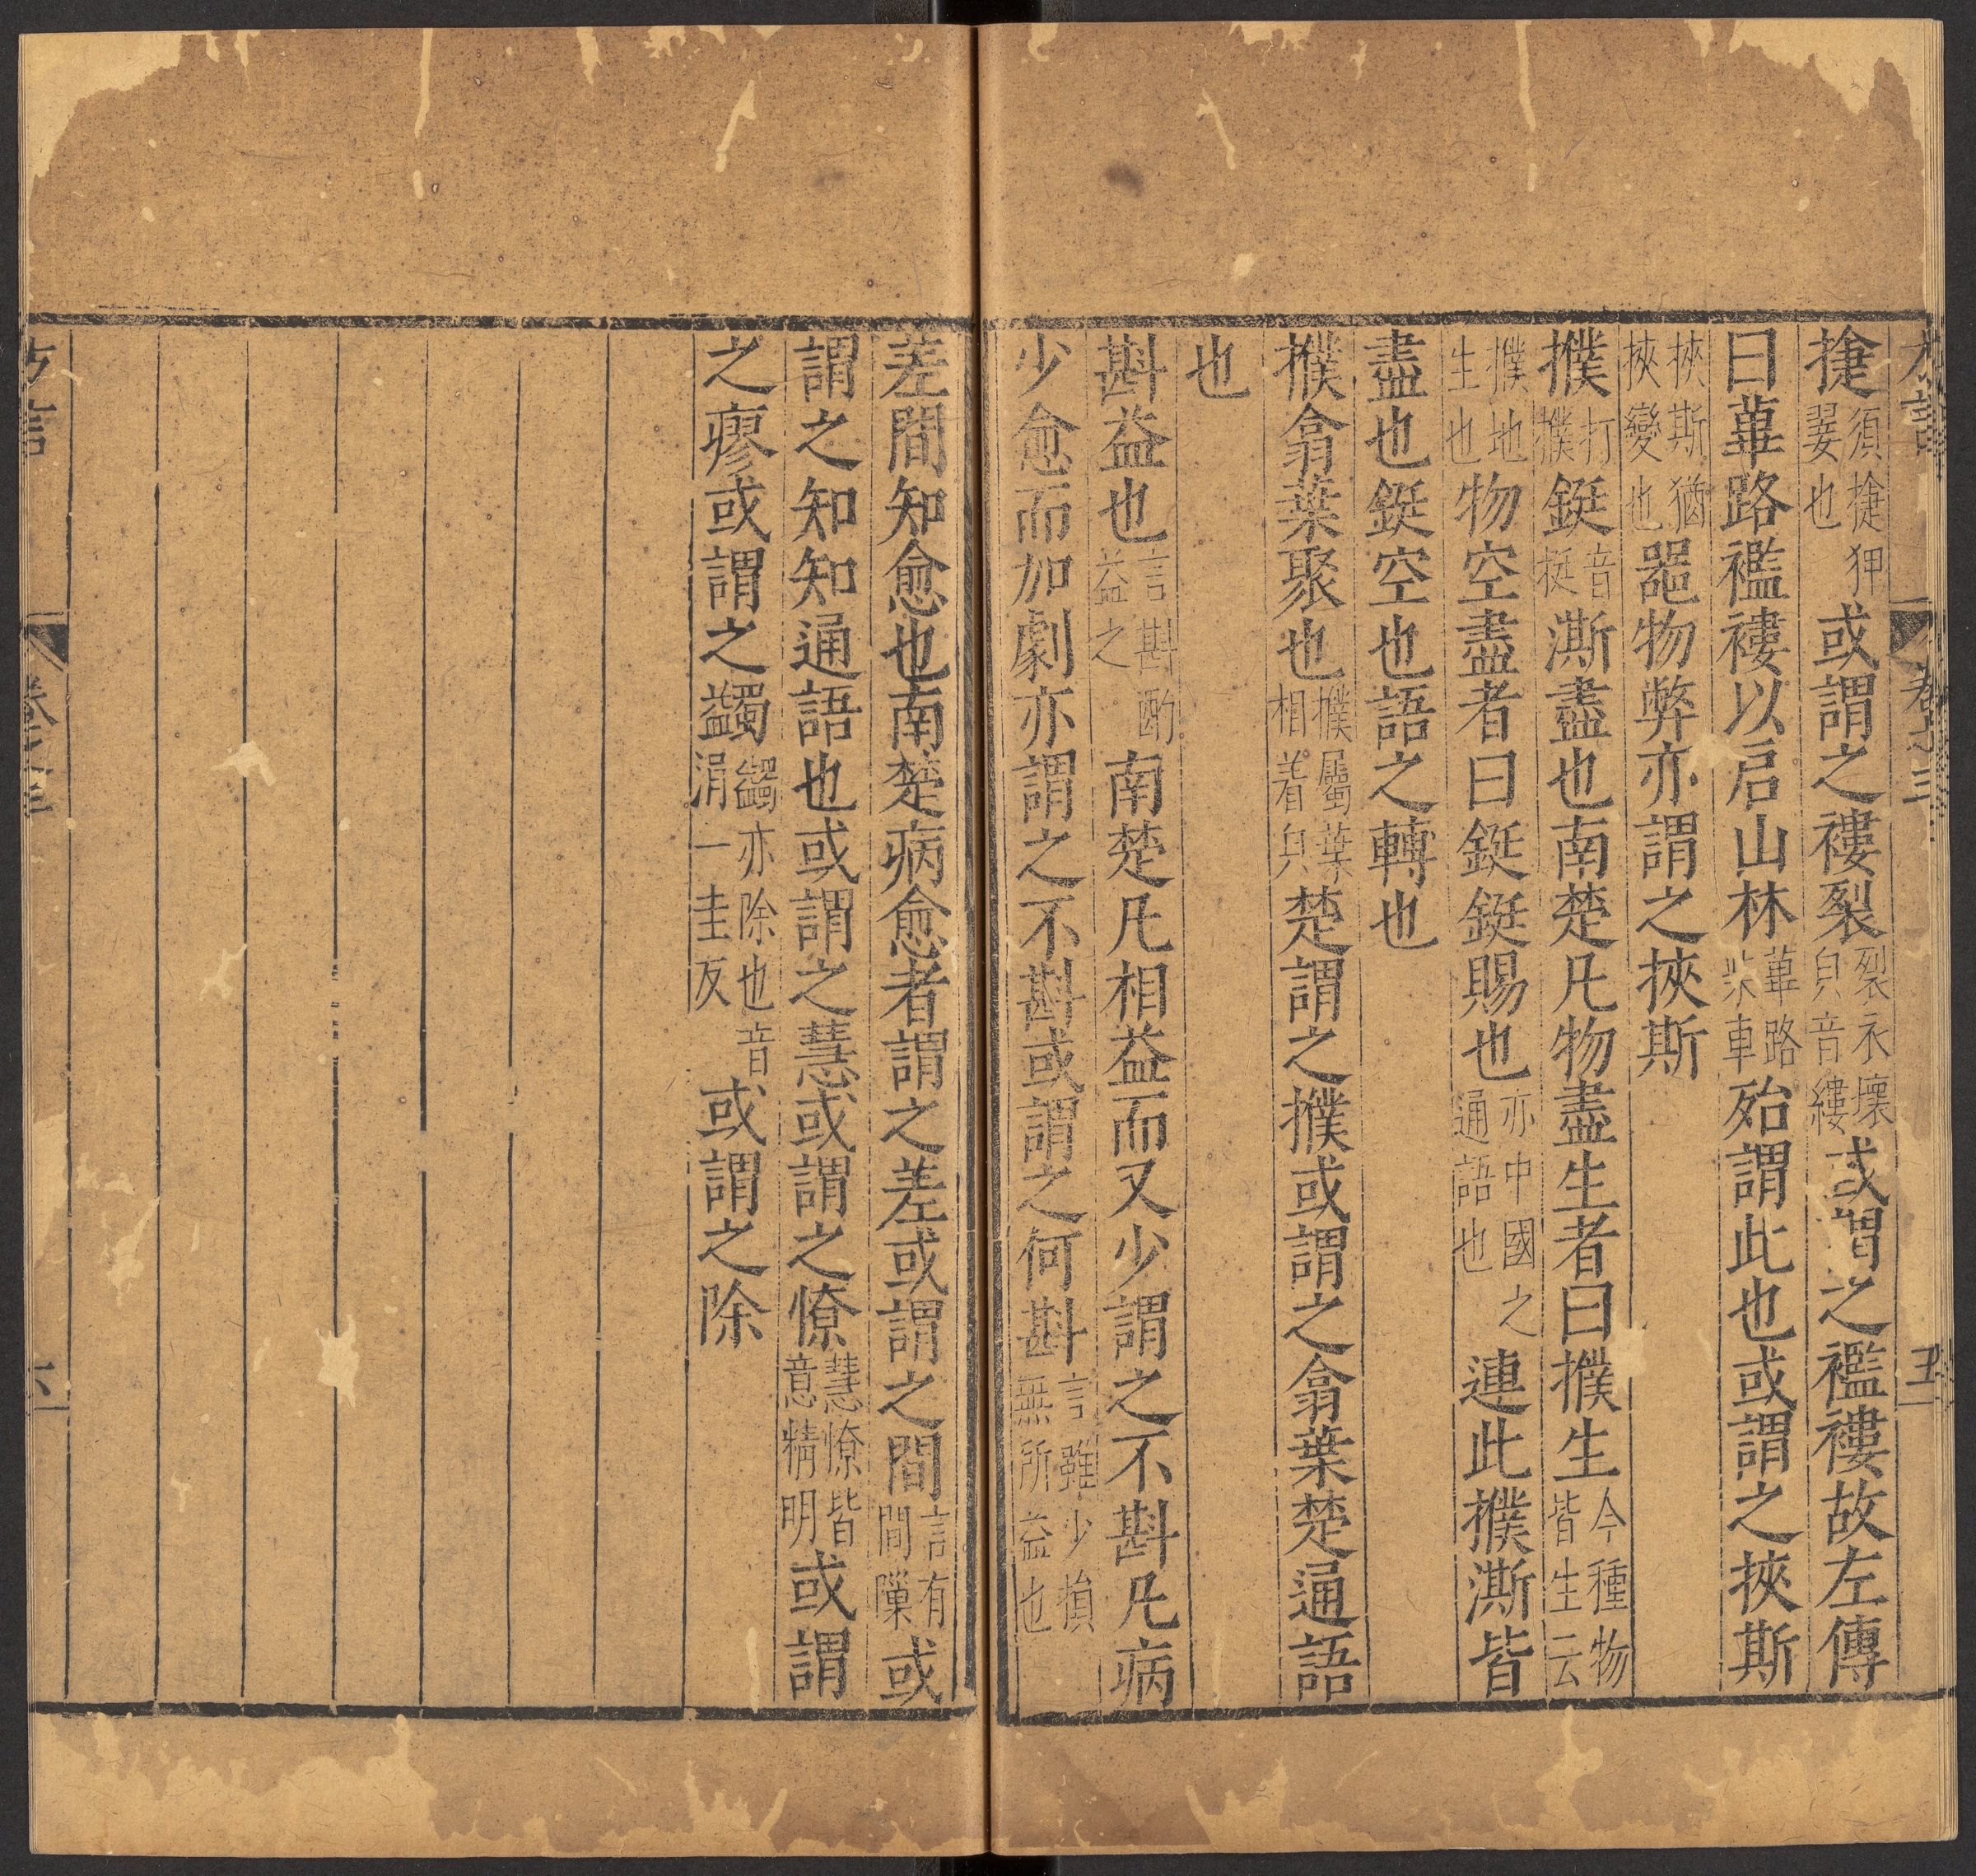 方言 卷三 五
捷須捷狎翣也或謂之褸裂裂衣壞皃音縷或謂之襤褸故左傳
曰蓽路襤褸以启山林蓽路柴車殆謂此也或謂之挾斯
挾斯猶挾變也噐物弊亦謂之挾斯
撲打撲鋌音挺澌盡也南楚凡物盡生者曰撲生今種物皆生云
撲地生也物空盡者曰鋌鋌賜也亦中國之通語也連此撲澌皆
盡也鋌空也語之轉也
撲翕葉聚也撲屬葉相着皃楚謂之撲或謂之翕葉楚通語
也
斟益也言斟酌益之南楚凡相益而又少謂之不斟凡病
少愈而加劇亦謂之不斟或謂之何斟言雖少損無所益也
差間知愈也南楚病愈者謂之差或謂之間言有間隟或
謂之知知通語也或謂之慧或謂之憭慧憭皆意精明或謂
之瘳或謂之蠲蠲亦除也音涓一圭反或謂之除
方言 卷三 六